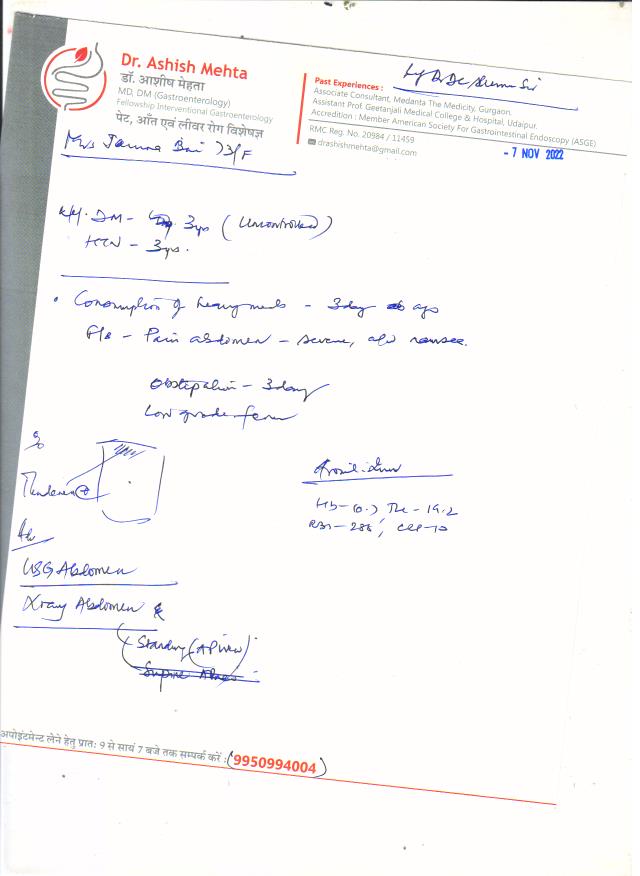 Dr. Ashish Mehta
डॉ. आशीष मेहता
MD, DM (Gastroenterology)
Fellowship Interventional Gastroenterology
पेट, आँत एवं लीवर रोग विशेषज्ञ
Past Experiences :
Associate Consultant, Medanta The Medicity, Gurgaon.
Assistant Prof. Geetanjali Medical College & Hospital, Udaipur.
Accreditation : Member American Society For Gastrointestinal Endoscopy (ASGE)
RMC Reg. No. 20984 / 11459
drashishmehta@gmail.com
- 7 NOV 2022
Mrs Jamna Bai 73/F
DM - 3 yrs (Uncontrolled)
HTN - 3 yrs.
• Consumption of heavy meals - 3 day ago
Pain abdomen - severe, a/w nausea.
Obstipation - 3 day
Low grade fever
Tenderness ⊕
Hb - 10.7 TLC - 19.2
RBS - 286, CRP -
Adv
USG Abdomen
Xray Abdomen
Standing (AP view)
Supine
अपोइंटमेन्ट लेने हेतु प्रातः 9 से सायं 7 बजे तक सम्पर्क करें : (9950994004)